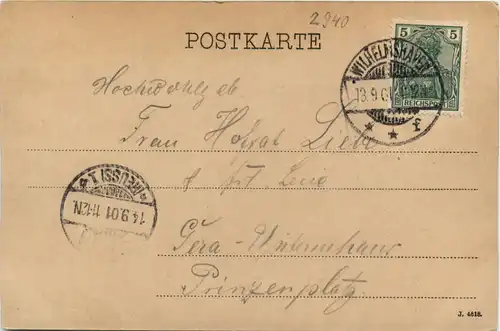 2940
POSTKARTE
5 5
REICHSPOST
WILHELMSHAVEN
13.9.01
* * f
Hochwohlgeb
Frau Hofrat Liebe
14.9.01 11-12N.
Gera-Untermhaus
Prinzenplatz
J. 4618.